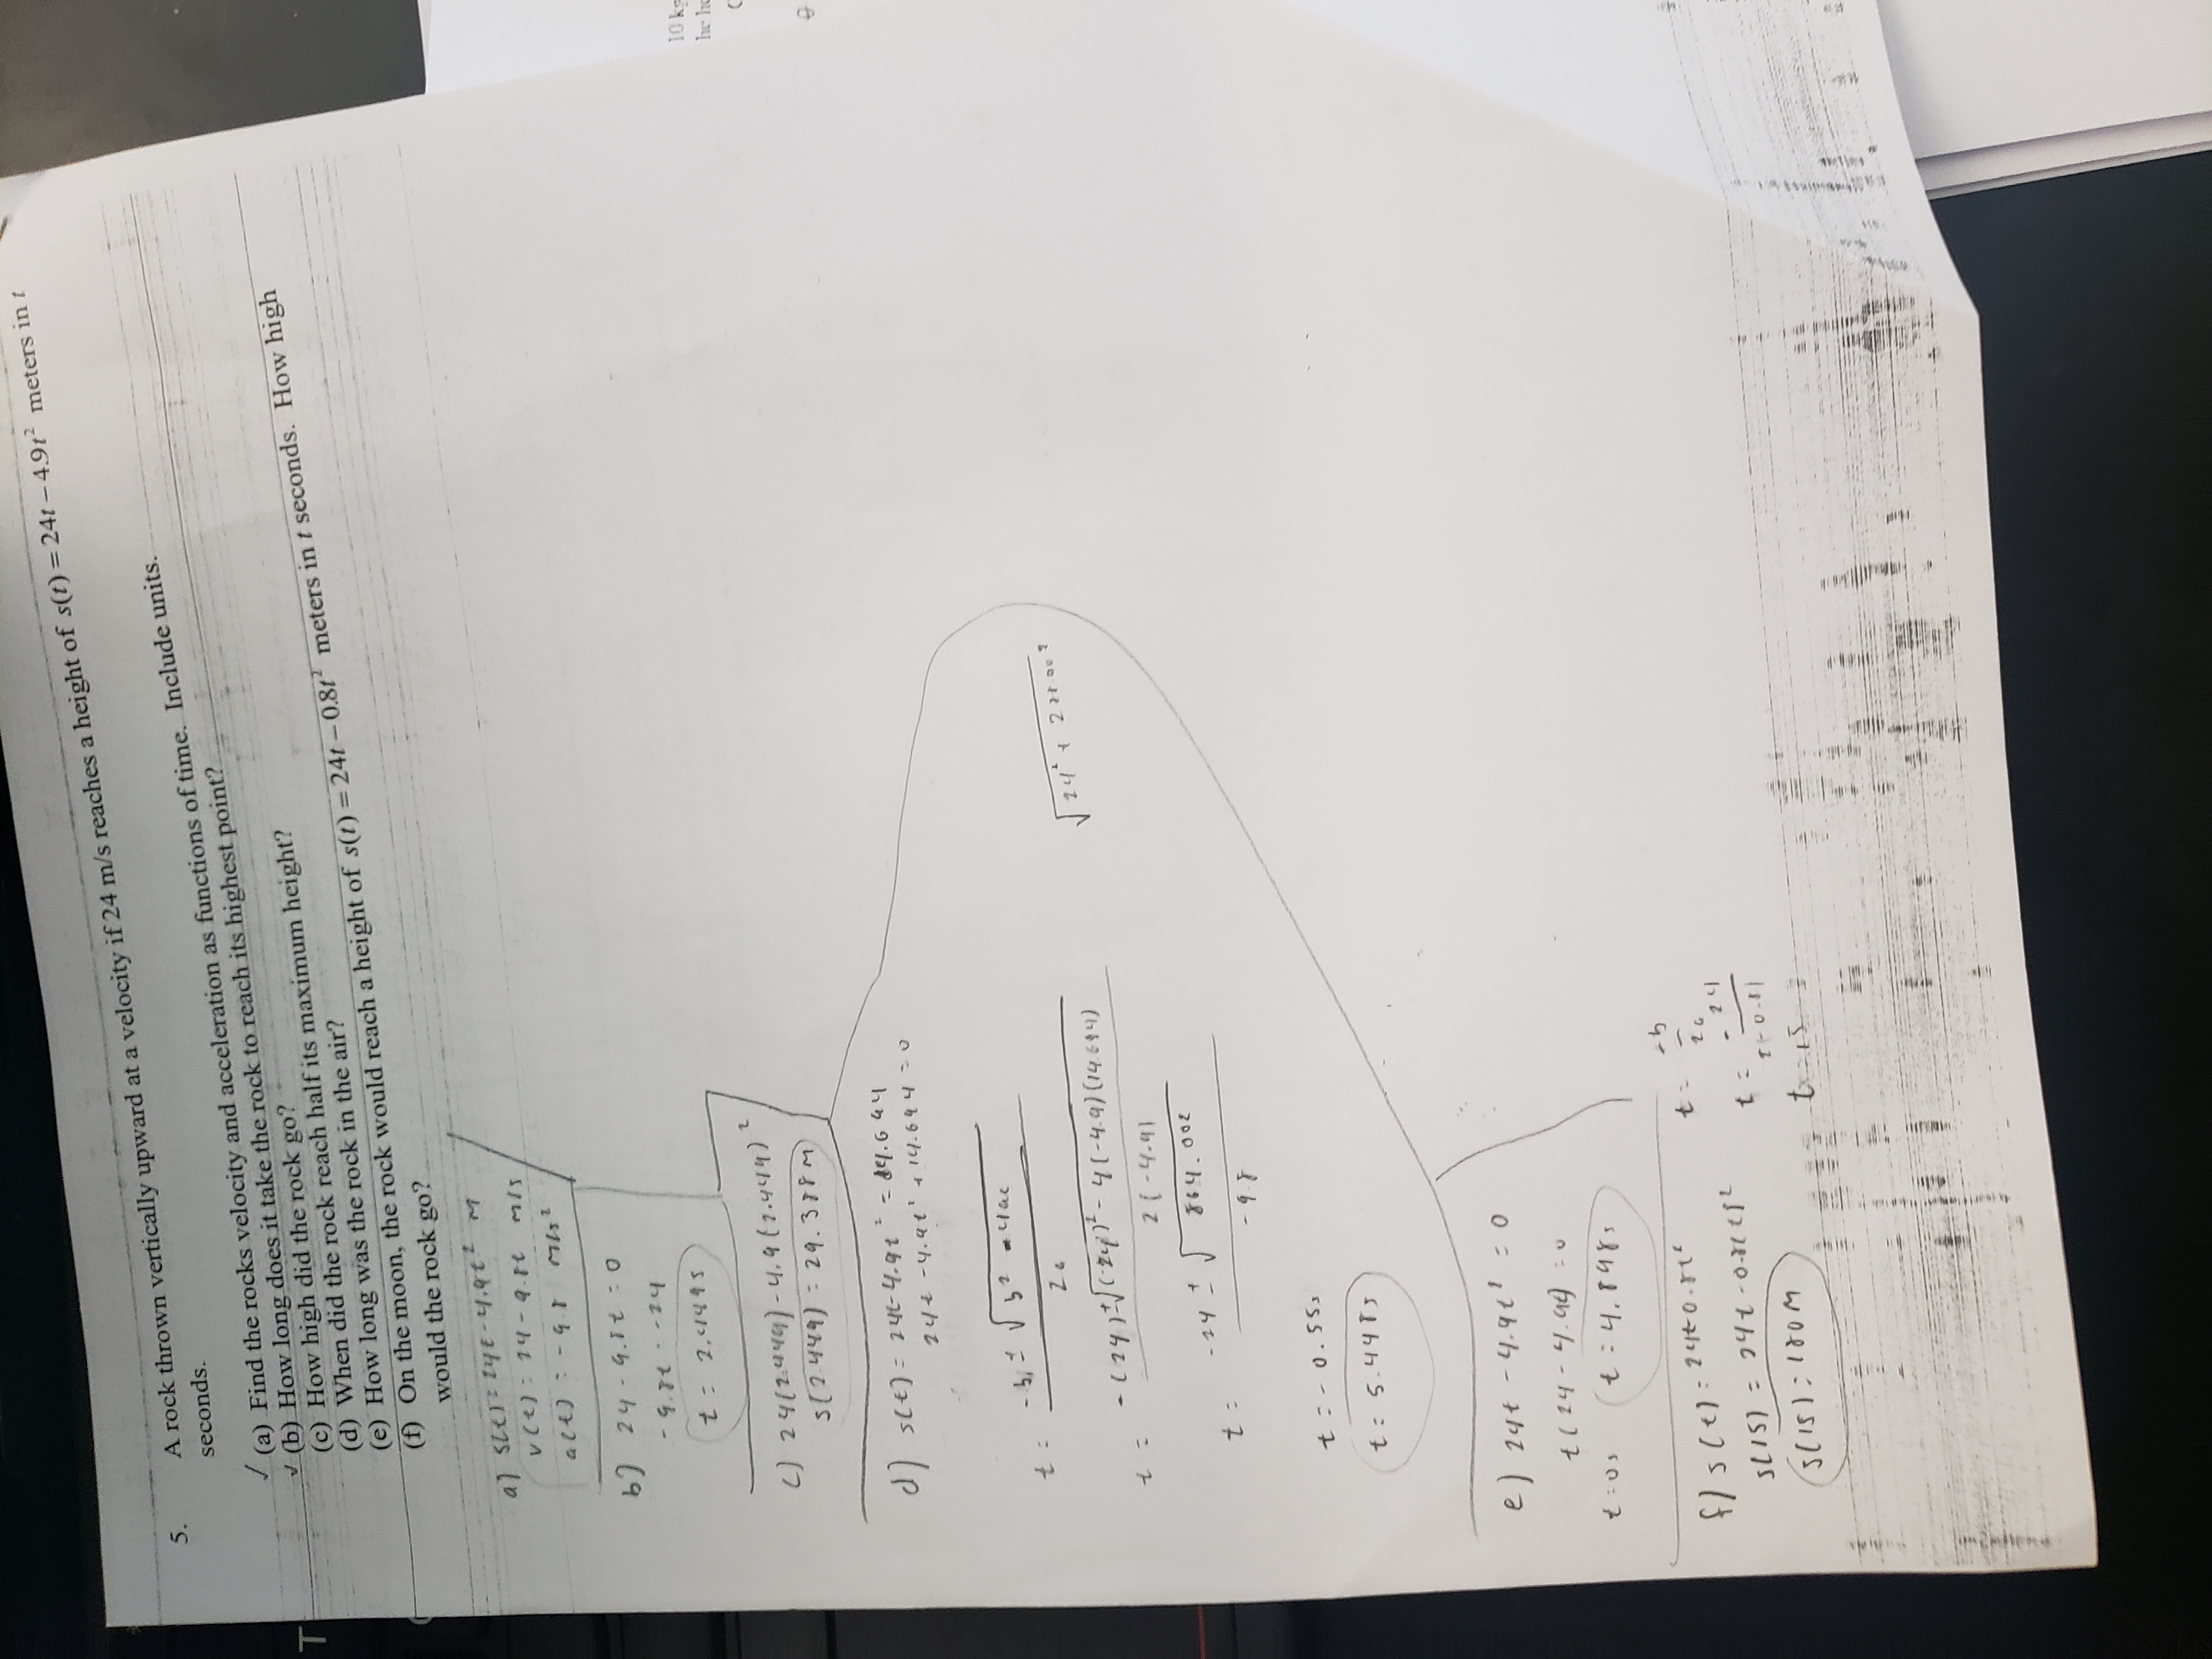 5. A rock thrown vertically upward at a velocity if 24 m/s reaches a height of s(t) = 24t – 4.9t² meters in t
seconds.
✓ (a) Find the rocks velocity and acceleration as functions of time. Include units.
✓ (b) How long does it take the rock to reach its highest point?
(c) How high did the rock go?
(d) When did the rock reach half its maximum height?
(e) How long was the rock in the air?
(f) On the moon, the rock would reach a height of s(t) = 24t – 0.8t² meters in t seconds. How high
would the rock go?
a) s(t) = 24t - 4.9t² M
v(t) = 24 - 9.8t m/s
a(t) = -9.8 m/s²
b) 24 - 9.8t = 0
-9.8t = -24
t = 2.449s
c) 24(2.449) - 4.9(2.449)²
s(2.449) = 29.388M
d) s(t) = 24t - 4.9t² = 14.694
24t - 4.9t² + 14.694 = 0
t = -b ± √b² - 4ac / 2a
t = -(24) ± √(-24)² - 4(-4.9)(14.694) / 2(-4.9)
√24² + 288.002
t = -24 ± √864.002 / -9.8
t = -0.55s
t = 5.448s
e) 24t - 4.9t² = 0
t(24 - 4.9t) = 0
t = 0s t = 4.898s
f) s(t) = 24t-0.8t²
s(15) = 24t - 0.8(t)²
s(15) = 180M
t = -b / 2a
t = -24 / 2(-0.8)
t = 15
10 kg